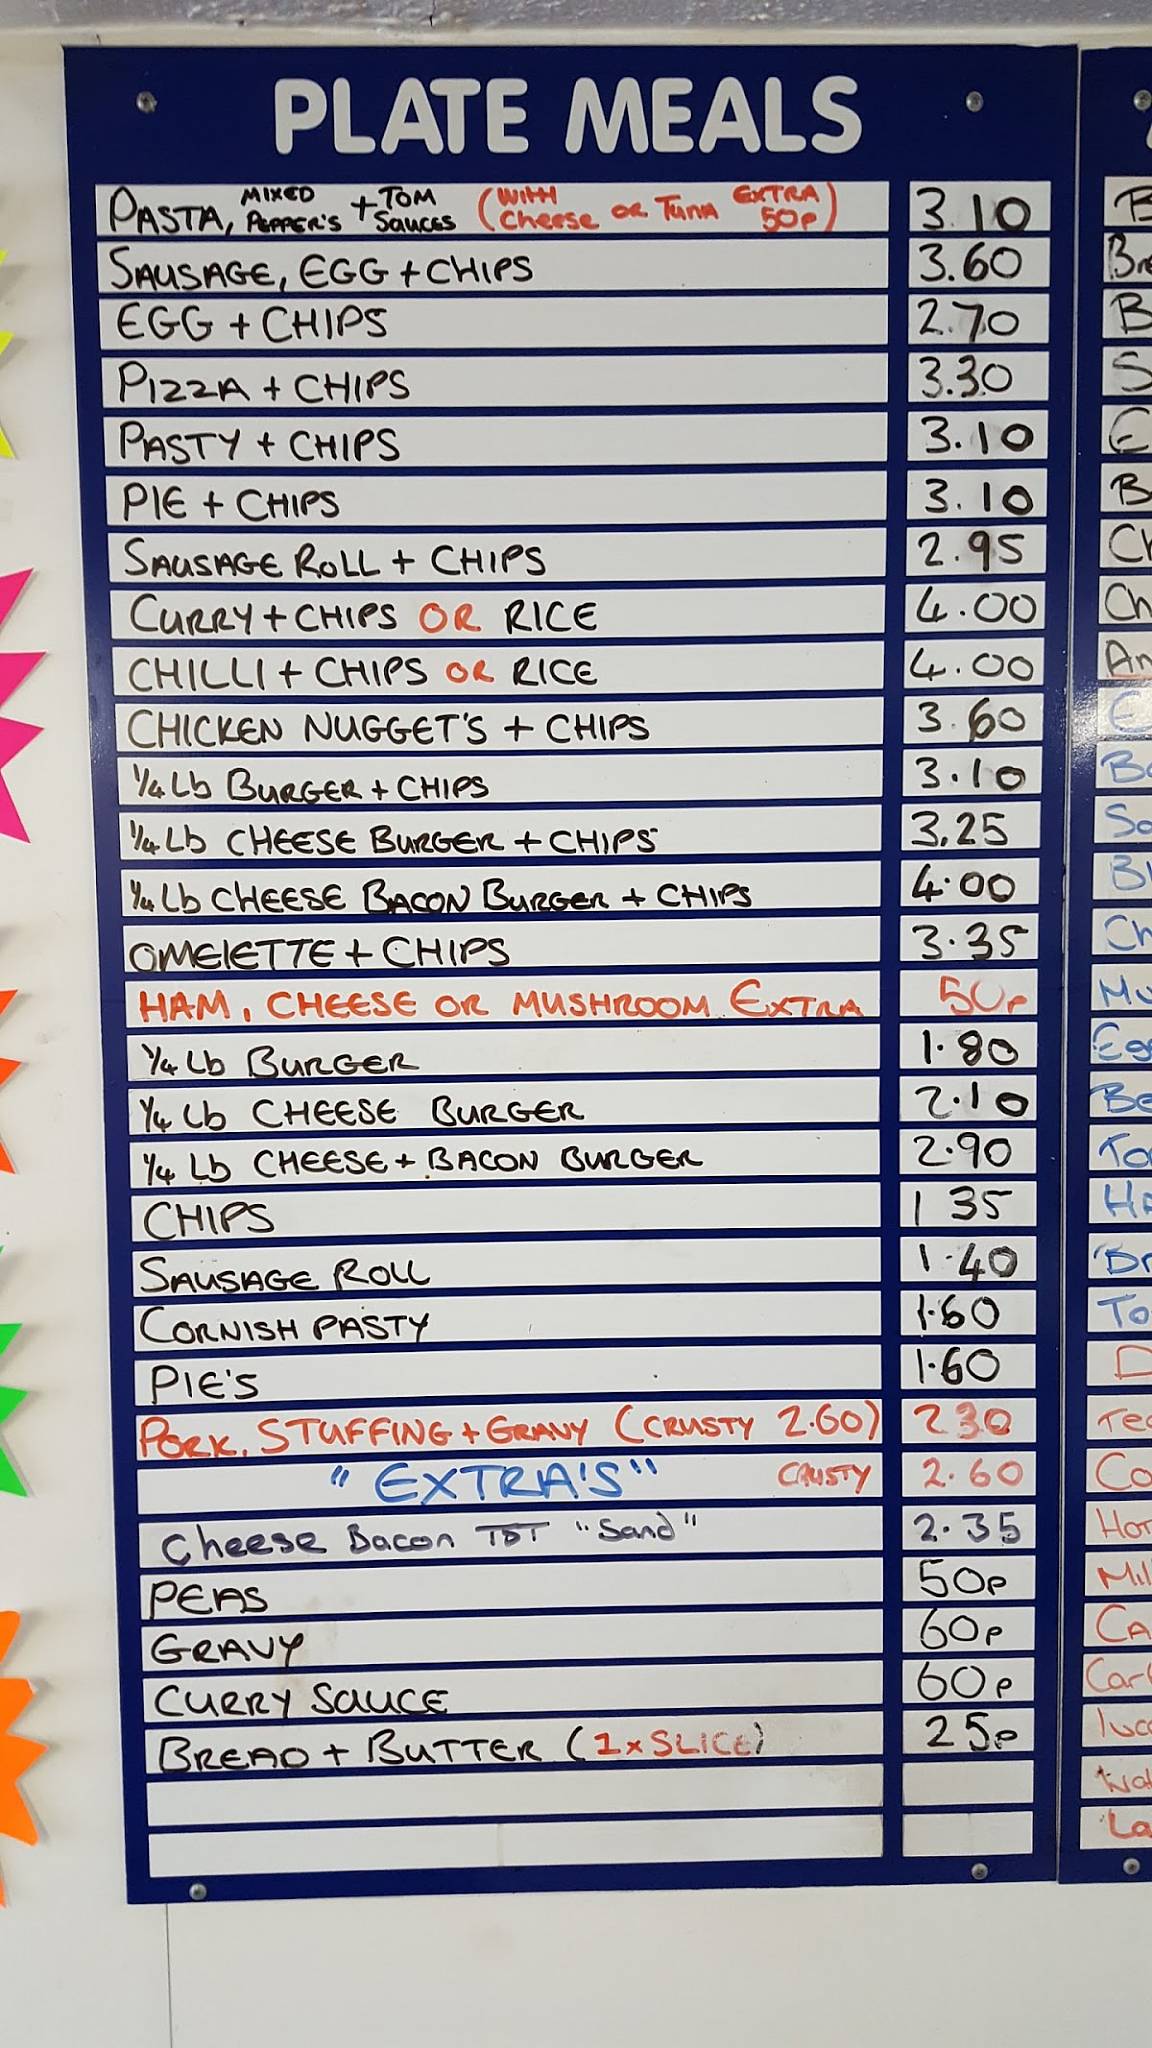 PLATE MEALS
PASTA, MIXED PEPPER'S + TOM SAUCES (WITH Cheese OR TUNA EXTRA 50p) 3.10
SAUSAGE, EGG + CHIPS 3.60
EGG + CHIPS 2.70
PIZZA + CHIPS 3.30
PASTY + CHIPS 3.10
PIE + CHIPS 3.10
SAUSAGE ROLL + CHIPS 2.95
CURRY + CHIPS OR RICE 4.00
CHILLI + CHIPS OR RICE 4.00
CHICKEN NUGGET'S + CHIPS 3.60
1/4 Lb BURGER + CHIPS 3.10
1/4 Lb CHEESE BURGER + CHIPS 3.25
1/4 Lb CHEESE BACON BURGER + CHIPS 4.00
OMElETTE + CHIPS 3.35
HAM, CHEESE OR MUSHROOM EXTRA 50p
1/4 Lb BURGER 1.80
1/4 Lb CHEESE BURGER 2.10
1/4 Lb CHEESE + BACON BURGER 2.90
CHIPS 1 35
SAUSAGE ROLL 1.40
CORNISH PASTY 1.60
PIE'S 1.60
PORK, STUFFING + GRAVY (CRUSTY 2.60) 2 30
"EXTRA'S" CRUSTY 2.60
Cheese Bacon TST "Sand" 2.35
PEAS 50p
GRAVY 60p
CURRY SAUCE 60p
BREAD + BUTTER (1 x SLICE) 25p